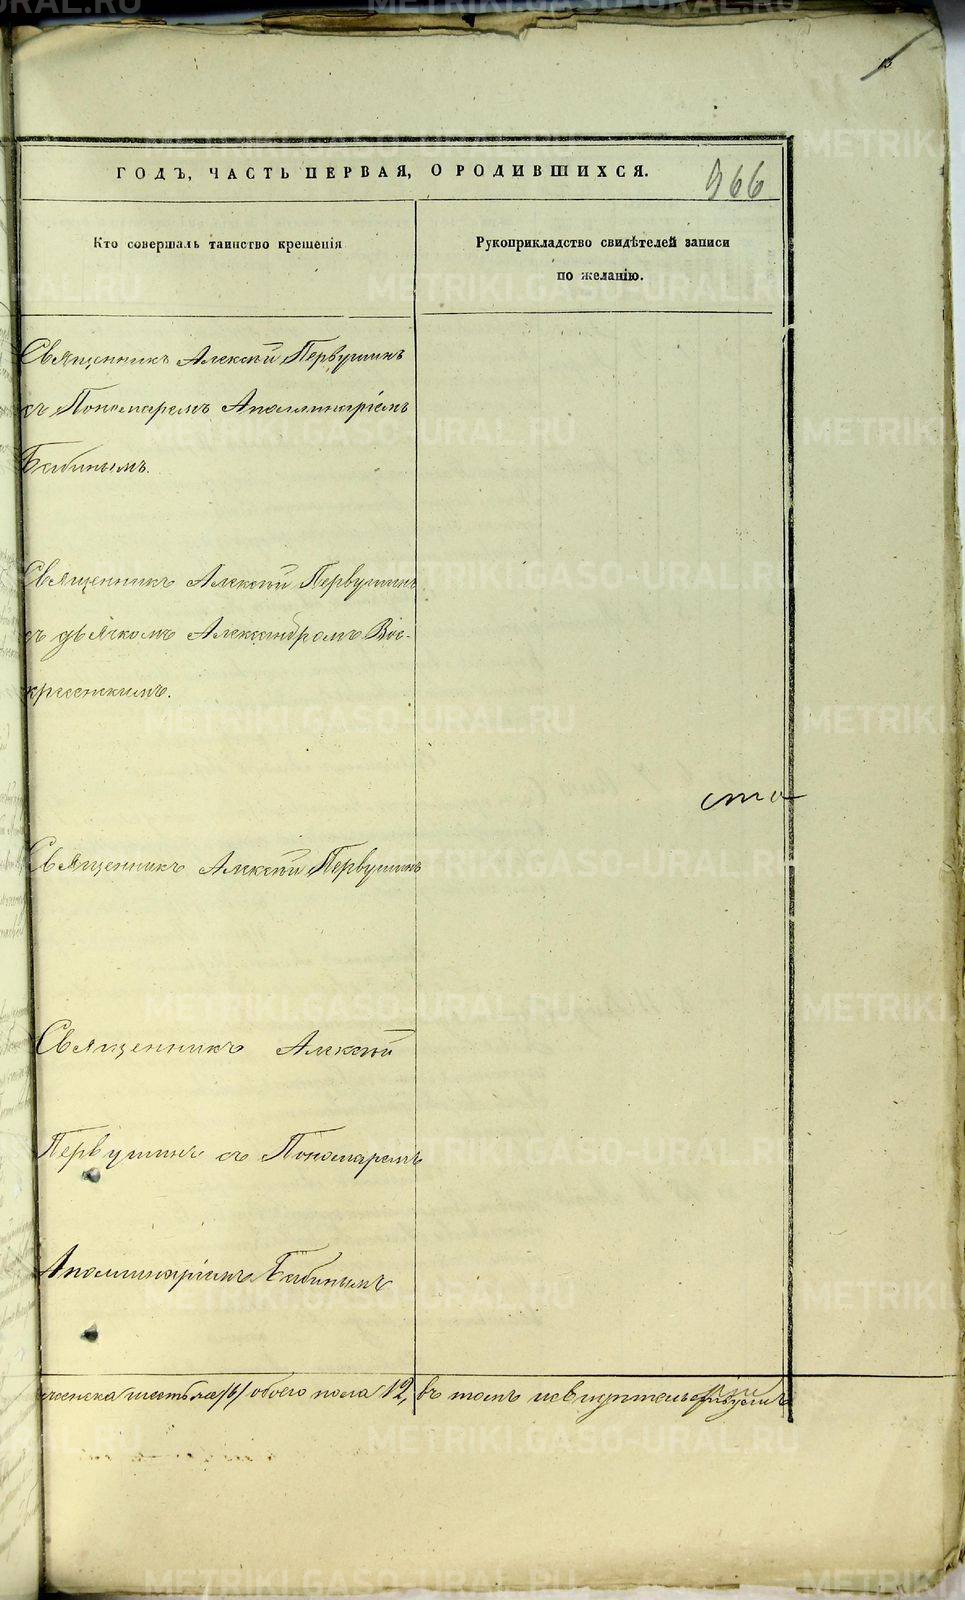 ГОДЪ, ЧАСТЬ ПЕРВАЯ, О РОДИВШИХСЯ.
366
Кто совершалъ таинство крещенія
Рукоприкладство свидѣтелей записи
по желанію.
Священникъ Алексѣй Первушинъ
съ Пономаремъ Аполлинаріемъ
Бабинымъ.
Священникъ Алексѣй Первушинъ
съ дьячкомъ Александромъ Вос-
кресенскимъ.
ста
Священникъ Алексѣй Первушинъ
Священникъ Алексѣй
Первушинъ съ Пономаремъ
Аполлинаріемъ Бабинымъ
женска шесть /6/ обоего пола 12, въ томъ
METRIKI.GASO-URAL.RU